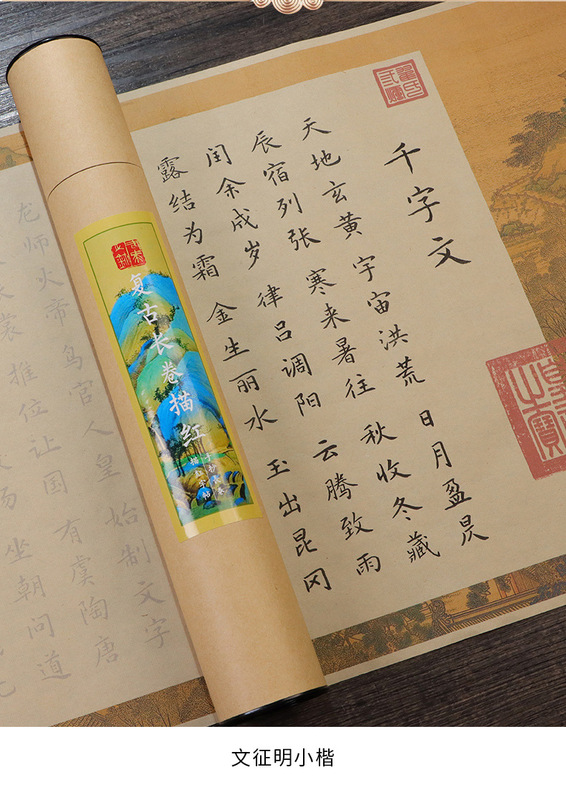 千字文
天地玄黄 宇宙洪荒 日月盈昃
辰宿列张 寒来暑往 秋收冬藏
闰余成岁 律吕调阳 云腾致雨
露结为霜 金生丽水 玉出昆冈
复古长卷描红
龙师火帝 鸟官人皇 始制文字
裳 推位让国 有虞陶唐
汤 坐朝问道
文征明小楷